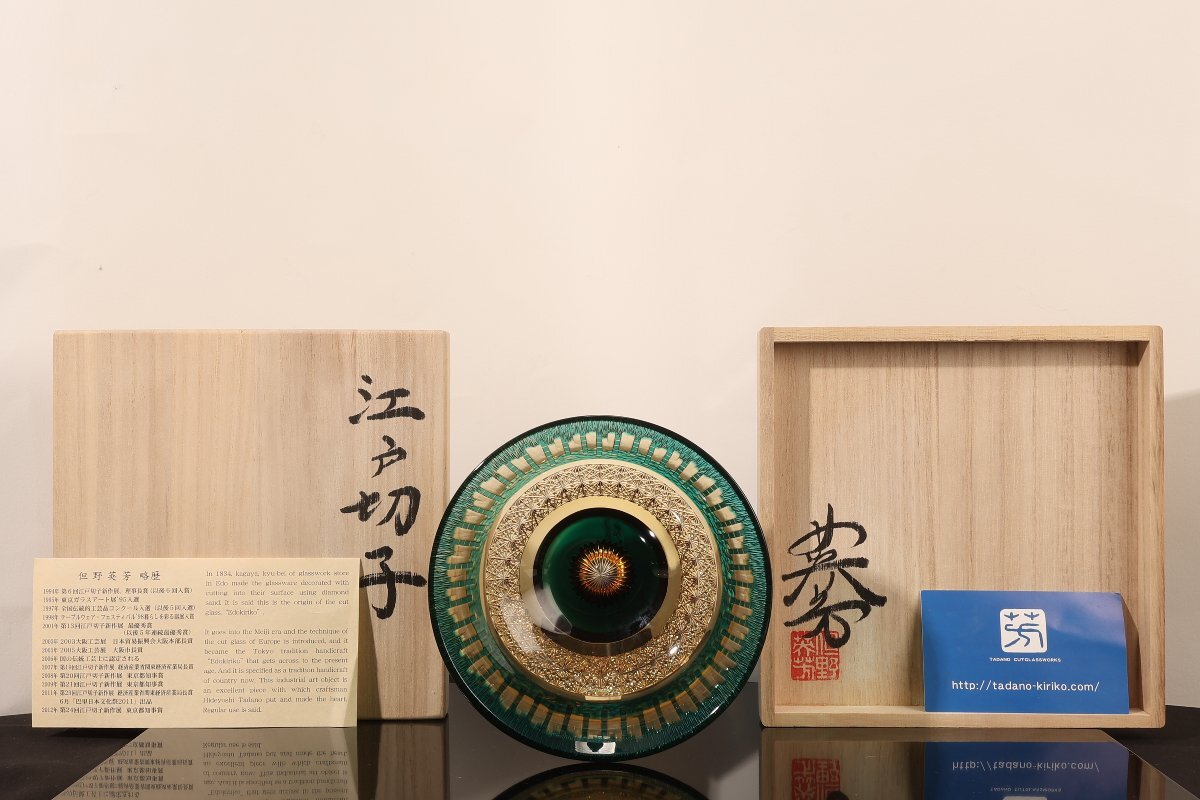 江戸切子
但野英芳 略歴
1994年 第6回江戸切子新作展 理事長賞(以後6回入賞)
1995年 東京ガラスアート展'95入選
1997年 全国伝統的工芸品コンクール入選(以後5回入選)
1998年 テーブルウェア・フェスティバル'98暮らしを彩る器展入賞
2001年 第13回江戸切子新作展 最優秀賞
(以後5年連続最優秀賞)
2003年 2003大阪工芸展 日本貿易振興会大阪本部長賞
2005大阪工芸展 大阪市長賞
国の伝統工芸士に認定される
2007年 第19回江戸切子新作展 経済産業省関東経済産業局長賞
2008年 第20回江戸切子新作展 東京都知事賞
2009年 第21回江戸切子新作展 東京都知事賞
2011年 第23回江戸切子新作展 経済産業省関東経済産業局長賞
6月「巴里日本文化祭2011」出品
2012年 第24回江戸切子新作展 東京都知事賞
In 1834, kagaya, kyu-bei, of glasswork store
in Edo made the glassware decorated with
cutting into their surface using diamond
sand. it is said this is the origin of the cut
glass, "Edokiriko".
It goes into the Meiji era and the technique of
the cut glass of Europe is introduced, and it
became the Tokyo tradition handicraft
"Edokiriko" that gets across to the present
age. And it is specified as a tradition handicraft
of country now. This industrial art object is
an excellent piece with which craftsman
Hideyoshi Tadano put and made the heart.
Regular use is said.
英芳
但野英芳
芳
TADANO CUTGLASSWORKS
http://tadano-kiriko.com/